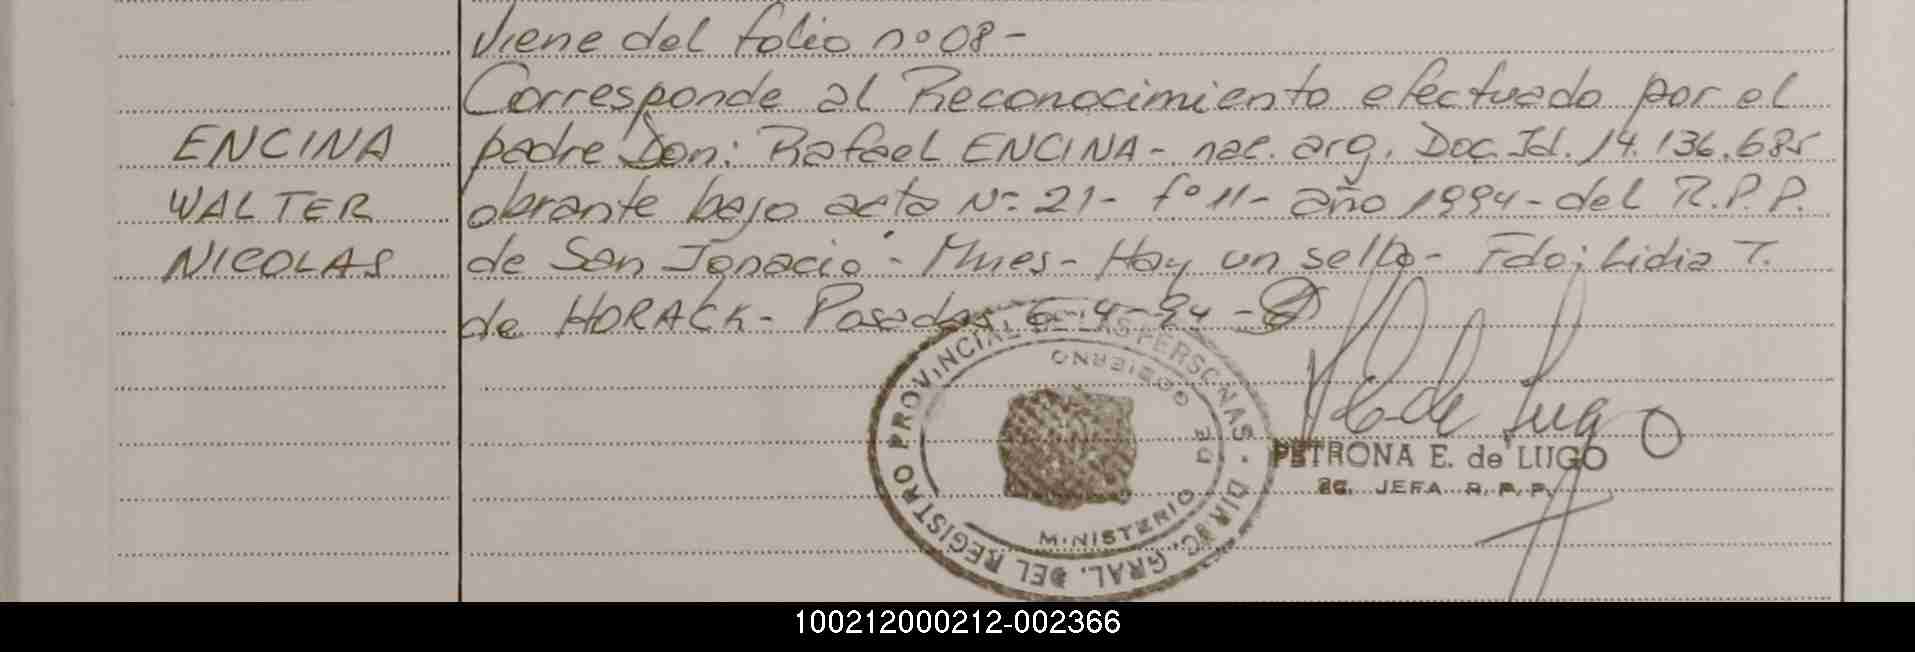 Viene del folio nº 08-
Corresponde al Reconocimiento efectuado por el
ENCINA padre Don: Rafael ENCINA - nac. arg. Doc. Id. 14.136.685
WALTER obrante bajo acta Nº 21- fº 11- año 1994- del R.P.P.
NICOLAS de San Ignacio - Mnes- Hay un sello- Fdo: Lidia T.
de HORACK- Posadas, 6-4-94-
P E de Lugo
PETRONA E. de LUGO
JEFA R. P. P.
DIREC. GRAL. DEL REGISTRO PROVINCIAL DE LAS PERSONAS
MINISTERIO DE GOBIERNO
100212000212-002366